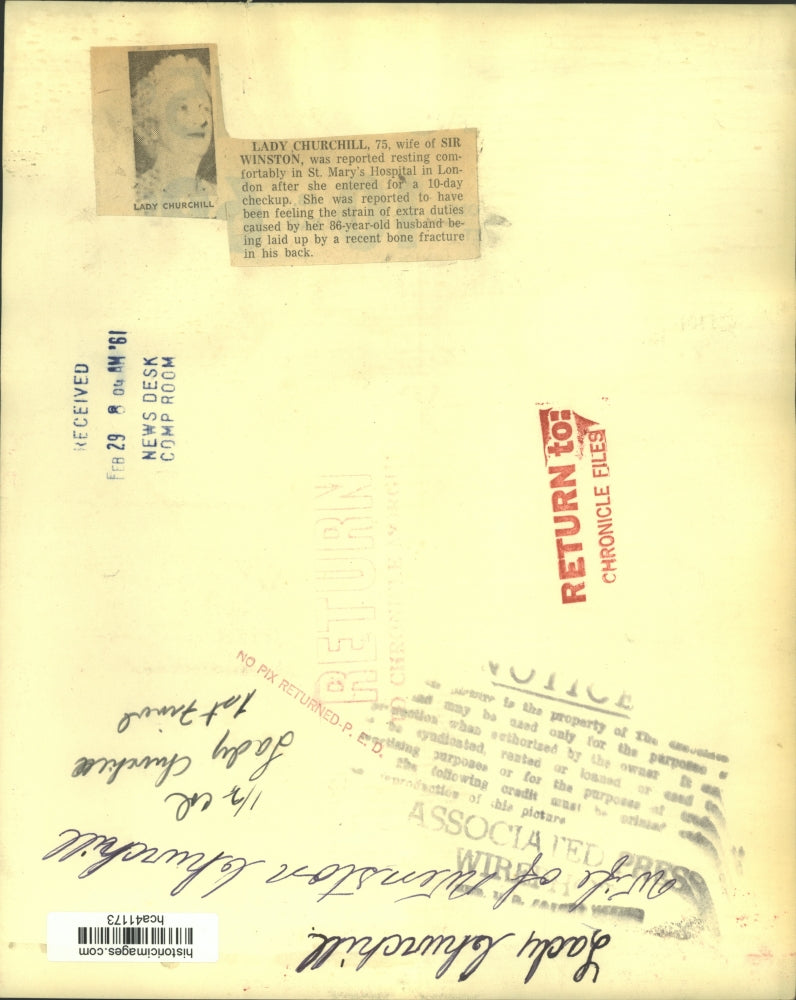 LADY CHURCHILL
LADY CHURCHILL, 75, wife of SIR
WINSTON, was reported resting com-
fortably in St. Mary's Hospital in Lon-
don after she entered for a 10-day
checkup. She was reported to have
been feeling the strain of extra duties
caused by her 86-year-old husband be-
ing laid up by a recent bone fracture
in his back.
RECEIVED
FEB 29 8 04 AM '61
NEWS DESK
COMP ROOM
RETURN to:
CHRONICLE FILES
RETURN
NO PIX RETURNED-P. E. D.
NOTICE
is the property of The
and may be used only for the purposes
when authorized by the owner It
be syndicated, rented or loaned or used
purposes or for the purposes of
The following credit must be printed
reproduction of this picture
ASSOCIATED PRESS
Lady Churchill
wife of Winston Churchill
1/2 col
Lady Churchill
1st Final
historicimages.com
hca41173